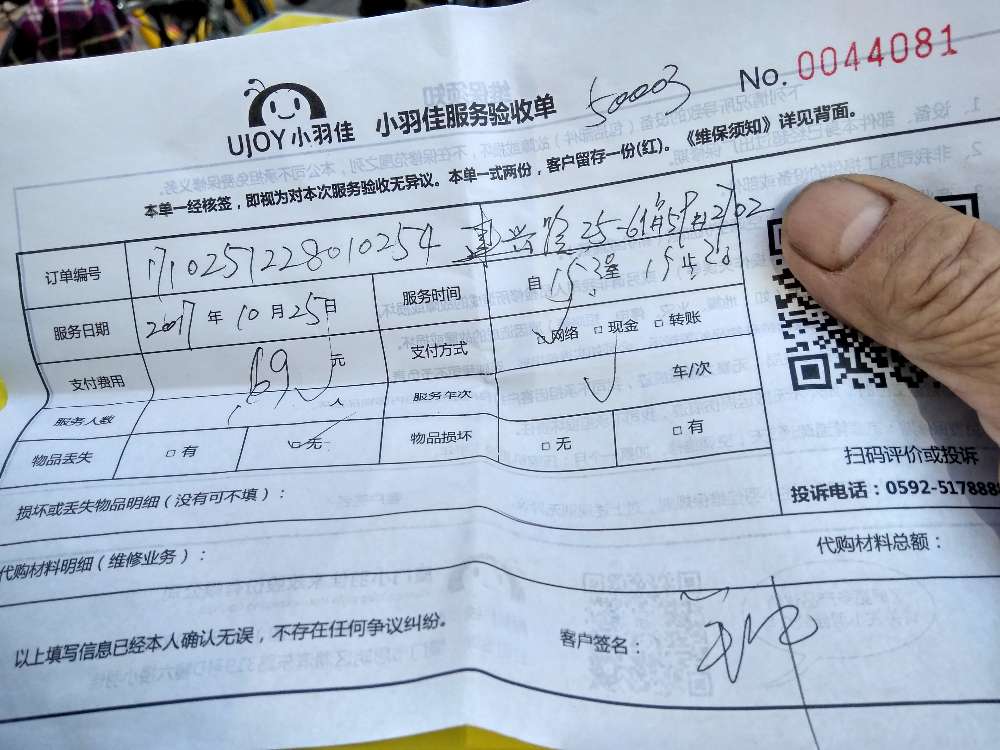 UJOY小羽佳 小羽佳服务验收单 50003 No. 0044081
本单一经核签，即视为对本次服务验收无异议。本单一式两份，客户留存一份(红)。《维保须知》详见背面。
订单编号 1710251228010254
服务日期 2017 年 10 月 25 日 服务时间 自
支付费用 69 元 支付方式 □网络 □现金 □转账
服务人数 人 服务车次 车/次
物品丢失 □有 □无 物品损坏 □无 □有
扫码评价或投诉
投诉电话：0592-5178888
损坏或丢失物品明细（没有可不填）：
代购材料明细（维修业务）： 代购材料总额：
以上填写信息已经本人确认无误，不存在任何争议纠纷。 客户签名：